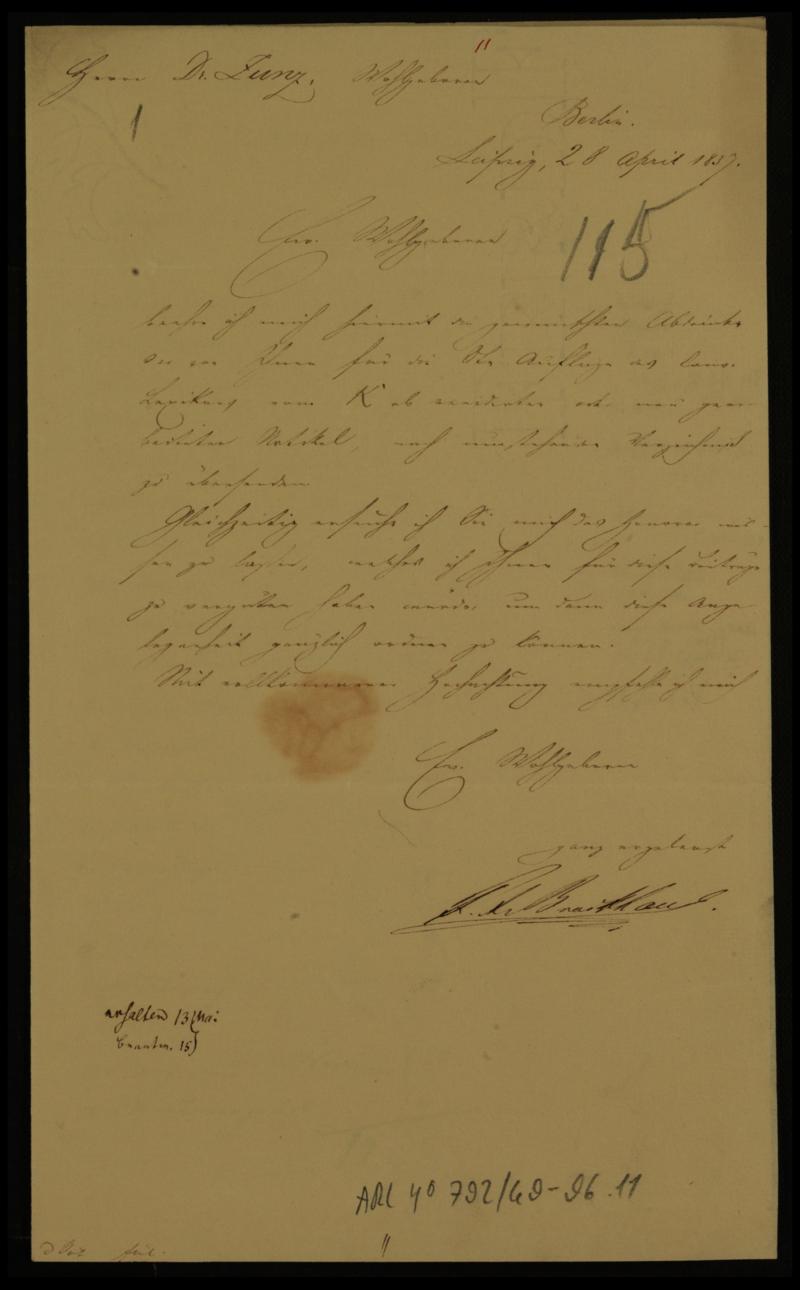 Herrn Dr. Zunz, Wohlgeboren
Berlin.
1
Leipzig, 28 April 1837.
115
Ew. Wohlgeboren
beehre ich mich hiermit die gewünschten Abdrücke
der von Ihnen für die 8te Auflage des Conv.
Lexikons vom K ab revidirten oder neu gear-
beiteten Artikel, nach umstehendem Verzeichniß
zu übersenden.
Gleichzeitig ersuche ich Sie mich das Honorar wis-
sen zu lassen, welches ich Ihnen für diese Beiträge
zu vergüten haben würde, um dann diese Ange-
legenheit gänzlich ordnen zu können.
Mit vollkommener Hochachtung empfehle ich mich
Ew. Wohlgeboren
ganz ergebenst
F. A. Brockhaus.
erhalten 13 Mai
beantw. 15
ARC 4° 792/